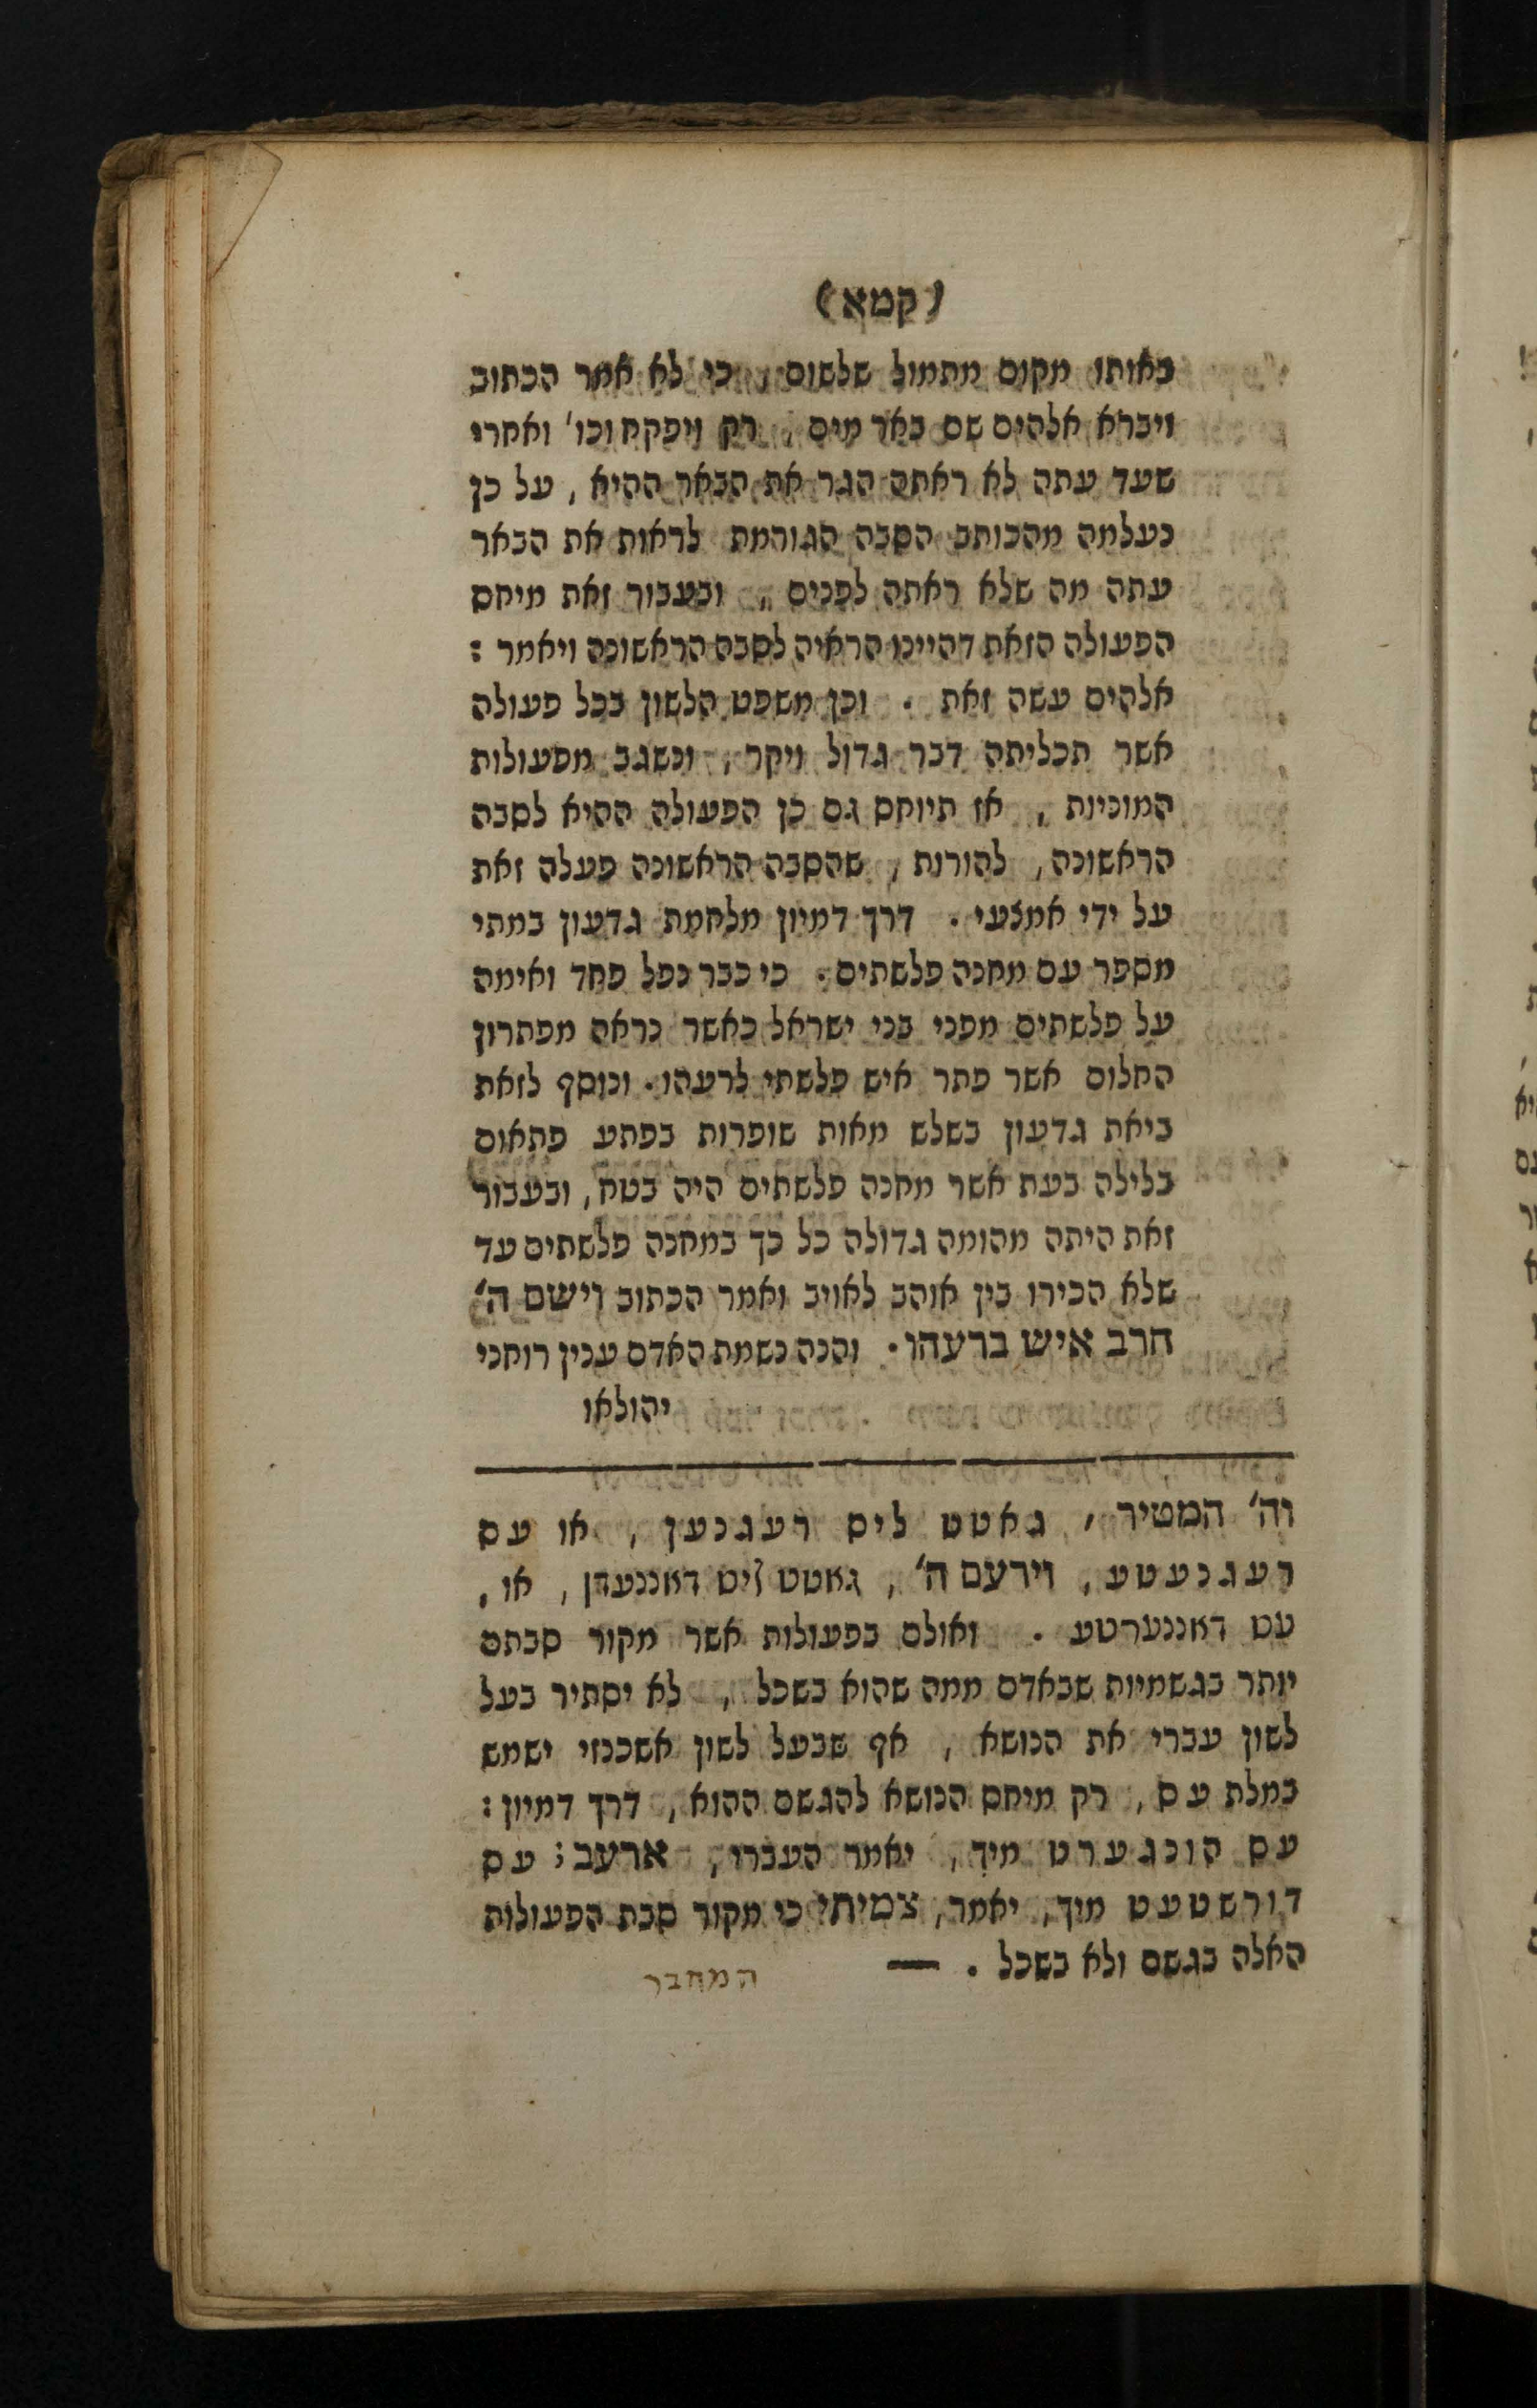 (קמא)
באותו מקום מתמול שלשום, כי לא אמר הכתוב
ויברא אלהים שם באר מים, רק ויפקח וכו' ואחרי
שעד עתה לא ראתה הגר את הבאר ההיא, על כן
נעלמה מהכותב הסבה הגורמת לראות את הבאר
עתה מה שלא ראתה לפנים, ובעבור זאת מיחס
הפעולה הזאת דהיינו הראיה לסבה הראשונה ויאמר:
אלהים עשה זאת. וכן משפט הלשון בכל פעולה
אשר תכליתה דבר גדול ויקר, ונשגב מפעולות
המוניות, אז תיוחס גם כן הפעולה ההיא לסבה
הראשונה, להורות, שהסבה הראשונה פעלה זאת
על ידי אמצעי. דרך דמיון מלחמת גדעון במתי
מספר עם מחנה פלשתים. כי כבר נפל פחד ואימה
על פלשתים מפני בני ישראל כאשר נראה מפתרון
החלום אשר פתר איש פלשתי לרעהו. ונוסף לזאת
ביאת גדעון בשלש מאות שופרות בפתע פתאום
בלילה בעת אשר מחנה פלשתים היה בטח, ובעבור
זאת היתה מהומה גדולה כל כך במחנה פלשתים עד
שלא הכירו בין אוהב לאויב ואמר הכתוב וישם ה'
חרב איש ברעהו. והנה נשמת האדם ענין רוחני
יהולאו
וה' המטיר, גאטט ליס רעגנען, או עס
רעגנעטע, וירעם ה', גאטט ליס דאננערן, או,
עס דאננערטע. ואולם בפעולות אשר מקור סבתם
יותר בגשמיות שבאדם ממה שהוא בשכל, לא יסתיר בעל
לשון עברי את הנושא, אף שבעל לשון אשכנזי ישמש
במלת עס, רק מיחס הנושא להגשם ההוא, דרך דמיון:
עס הונגערט מיך, יאמר העברי, ארעב; עס
דורשטעט מיך, יאמר, צמיתי כי מקור סבת הפעולות
האלה בגשם ולא בשכל. —
המחבר